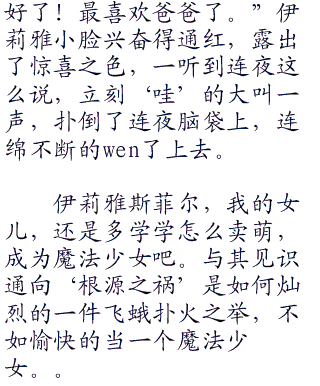 好了！最喜欢爸爸了。”伊
莉雅小脸兴奋得通红，露出
了惊喜之色，一听到连夜这
么说，立刻‘哇’的大叫一
声，扑倒了连夜脑袋上，连
绵不断的wen了上去。
伊莉雅斯菲尔，我的女
儿，还是多学学怎么卖萌，
成为魔法少女吧。与其见识
通向‘根源之祸’是如何灿
烈的一件飞蛾扑火之举，不
如愉快的当一个魔法少
女。。